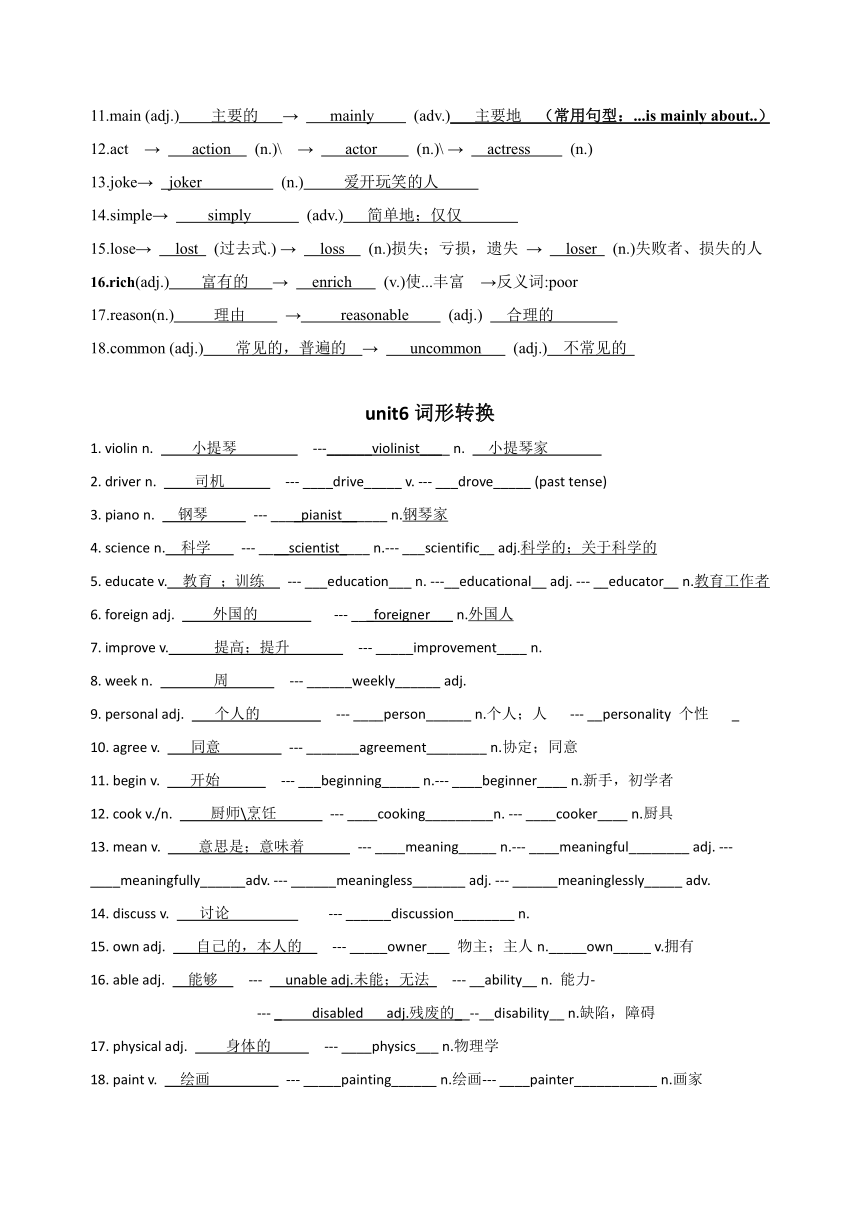 11.main (adj.)____主要的___→ ___mainly____ (adv.)___主要地__（常用句型：...is mainly about..）
12.act → ___action__ (n.)\ → ___actor____ (n.)\ → ___actress____ (n.)
13.joke→ _joker_________ (n.)_____爱开玩笑的人_____
14.simple→ ____simply______ (adv.)___简单地；仅仅_______
15.lose→ __lost_ (过去式.) → __loss__ (n.)损失；亏损，遗失 → __loser_ (n.)失败者、损失的人
16.rich(adj.)____富有的___→ __enrich___ (v.)使...丰富 →反义词:poor
17.reason(n.)_____理由____ →_____reasonable____ (adj.) __合理的________
18.common (adj.)____常见的，普遍的__→ ___uncommon___ (adj.)__不常见的_
unit6 词形转换
1. violin n. ____小提琴________ ---______violinist____ n. __小提琴家_______
2. driver n. ____司机______ --- ____drive_____ v. --- ___drove_____ (past tense)
3. piano n. __钢琴_____ --- ____pianist______ n.钢琴家
4. science n.__科学___ --- ____scientist____ n.--- ___scientific__ adj.科学的；关于科学的
5. educate v.__教育 ；训练__ --- ___education___ n. ---__educational__ adj. --- __educator__ n.教育工作者
6. foreign adj. ____外国的_______ --- ___foreigner___ n.外国人
7. improve v.______提高；提升_______ --- _____improvement____ n.
8. week n. _______周______ --- ______weekly______ adj.
9. personal adj. ___个人的________ --- ____person______ n.个人；人 --- __personality 个性 _
10. agree v. ___同意________ --- _______agreement________ n.协定；同意
11. begin v. ___开始______ --- ___beginning_____ n.--- ____beginner____ n.新手，初学者
12. cook v./n. ____厨师\烹饪______ --- ____cooking_________n. --- ____cooker____ n.厨具
13. mean v. ____意思是；意味着______ --- ____meaning_____ n.--- ____meaningful________ adj. ---
____meaningfully______adv. --- ______meaningless_______ adj. --- ______meaninglessly_____ adv.
14. discuss v. ___讨论_________ --- ______discussion________ n.
15. own adj. ___自己的，本人的__ --- _____owner___ 物主；主人 n._____own_____ v.拥有
16. able adj. __能够__ --- __unable adj.未能；无法_ --- __ability__ n. 能力-
--- _____disabled___adj.残废的__--__disability__ n.缺陷，障碍
17. physical adj. ____身体的_____ --- ____physics___ n.物理学
18. paint v. __绘画_________ --- _____painting______ n.绘画--- ____painter___________ n.画家